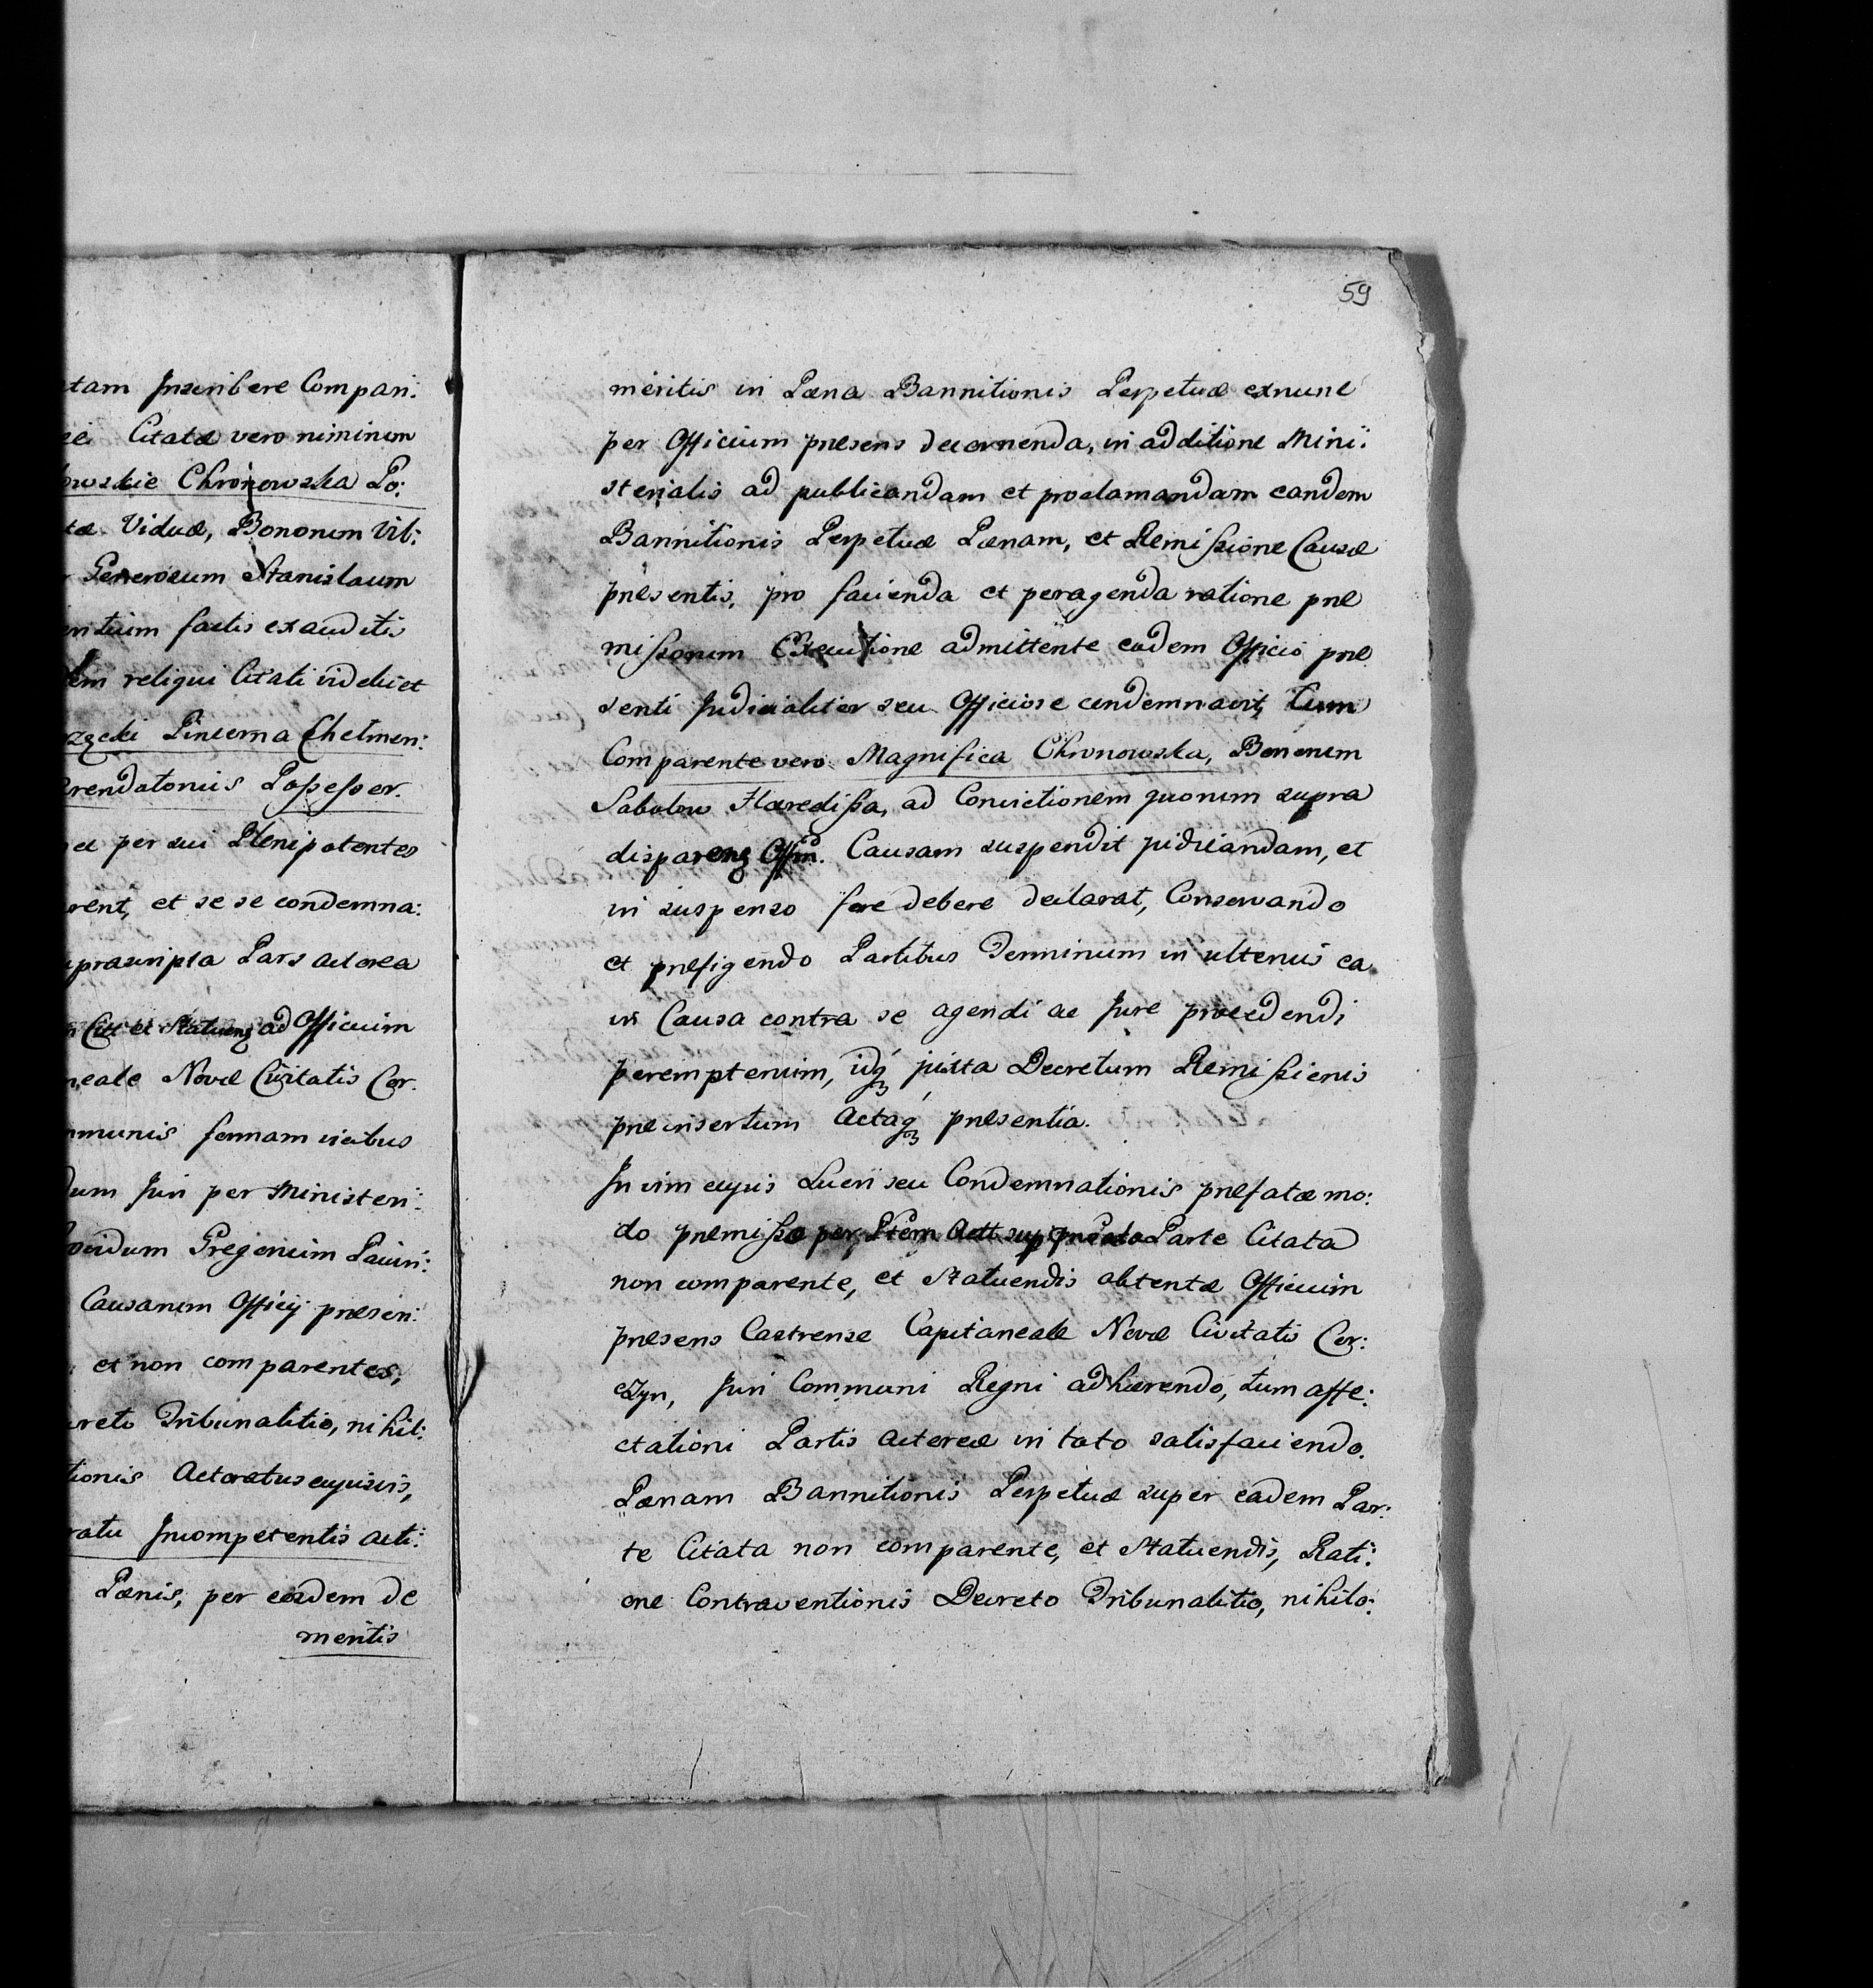 tam Inscribere Compari:
Citatæ vero niminum
owskie Chronowska Po:
tæ Viduæ, Bonorum Vil:
Generosum Stanislaum
entium factis exauditis
reliqui Citati videlicet
Pincerna Chelmen:
rendatorius Possessor.
per sui Plenipotentes
rent, et se se condemna:
uprascripta Pars actorea
ad Officium
neale Novæ Civitatis Cor.
mmunis formam viribus
dum Juri per Ministeri:
Gregorium Pavin:
Causarum Officij præsen:
et non comparentes,
creto Tribunalitio, nihil:
tionis Actoratus cujusvis,
ratu Incompetentis acti:
Pænis, per eadem de
meritis
59
meritis in Pæna Bannitionis Perpetuæ exnunc
per Officium præsens decernenda, in additione Mini:
sterialis ad publicandam et proclamandam eandem
Bannitionis Perpetuæ Pænam, et Remissione Causæ
præsentis, pro facienda et peragenda ratione præ
missorum Executione admittente eadem Officio præ
senti Judicialiter seu Officiose condemnavit, Cum
Comparente vero Magnifica Chronowska, Bonorum
Sabalow Hæredissa, ad Convictionem quorum supra
disparens Offm. Causam suspendit judicandam, et
in suspenso fore debere declarat, Conservando
et præfigendo Partibus Terminum in ulterius ea
in Causa contra se agendi ac Jure procedendi
peremptorium, idq juxta Decretum Remissionis
præinsertum Actaq præsentia.
In vim cujus Lucri seu Condemnationis præfatæ mo:
do præmisso per Ptem Parte Citata
non comparente, et Statuendis obtentæ Officium
præsens Castrense Capitaneale Novæ Civitatis Cor:
czyn, Juri Communi Regni adhærendo, tum affe:
ctationi Partis Actoreæ in toto satisfaciendo.
Pænam Bannitionis Perpetuæ super eadem Par:
te Citata non comparente, et Statuendis, Rati:
one Contraventionis Decreto Tribunalitio, nihilo: